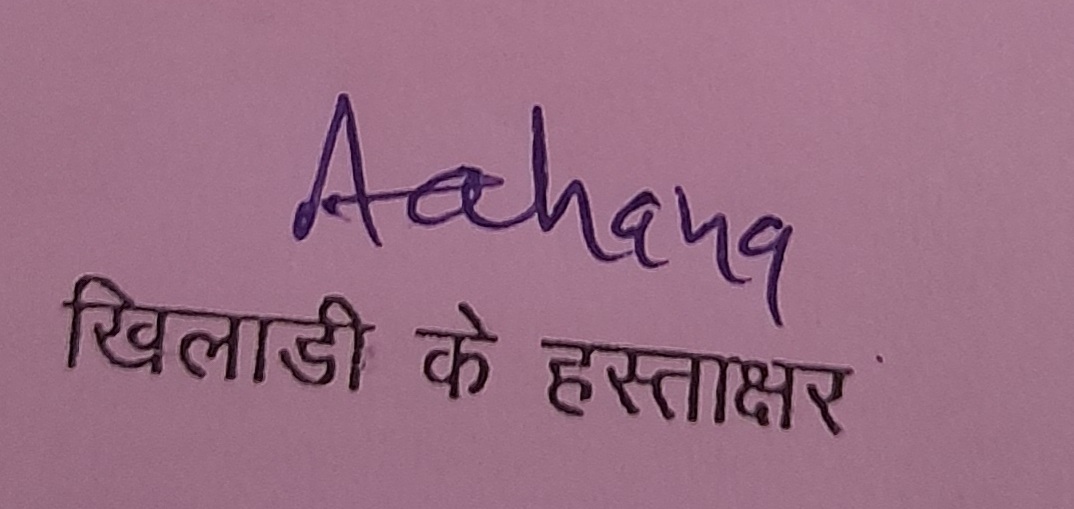 Aahana
खिलाडी के हस्ताक्षर